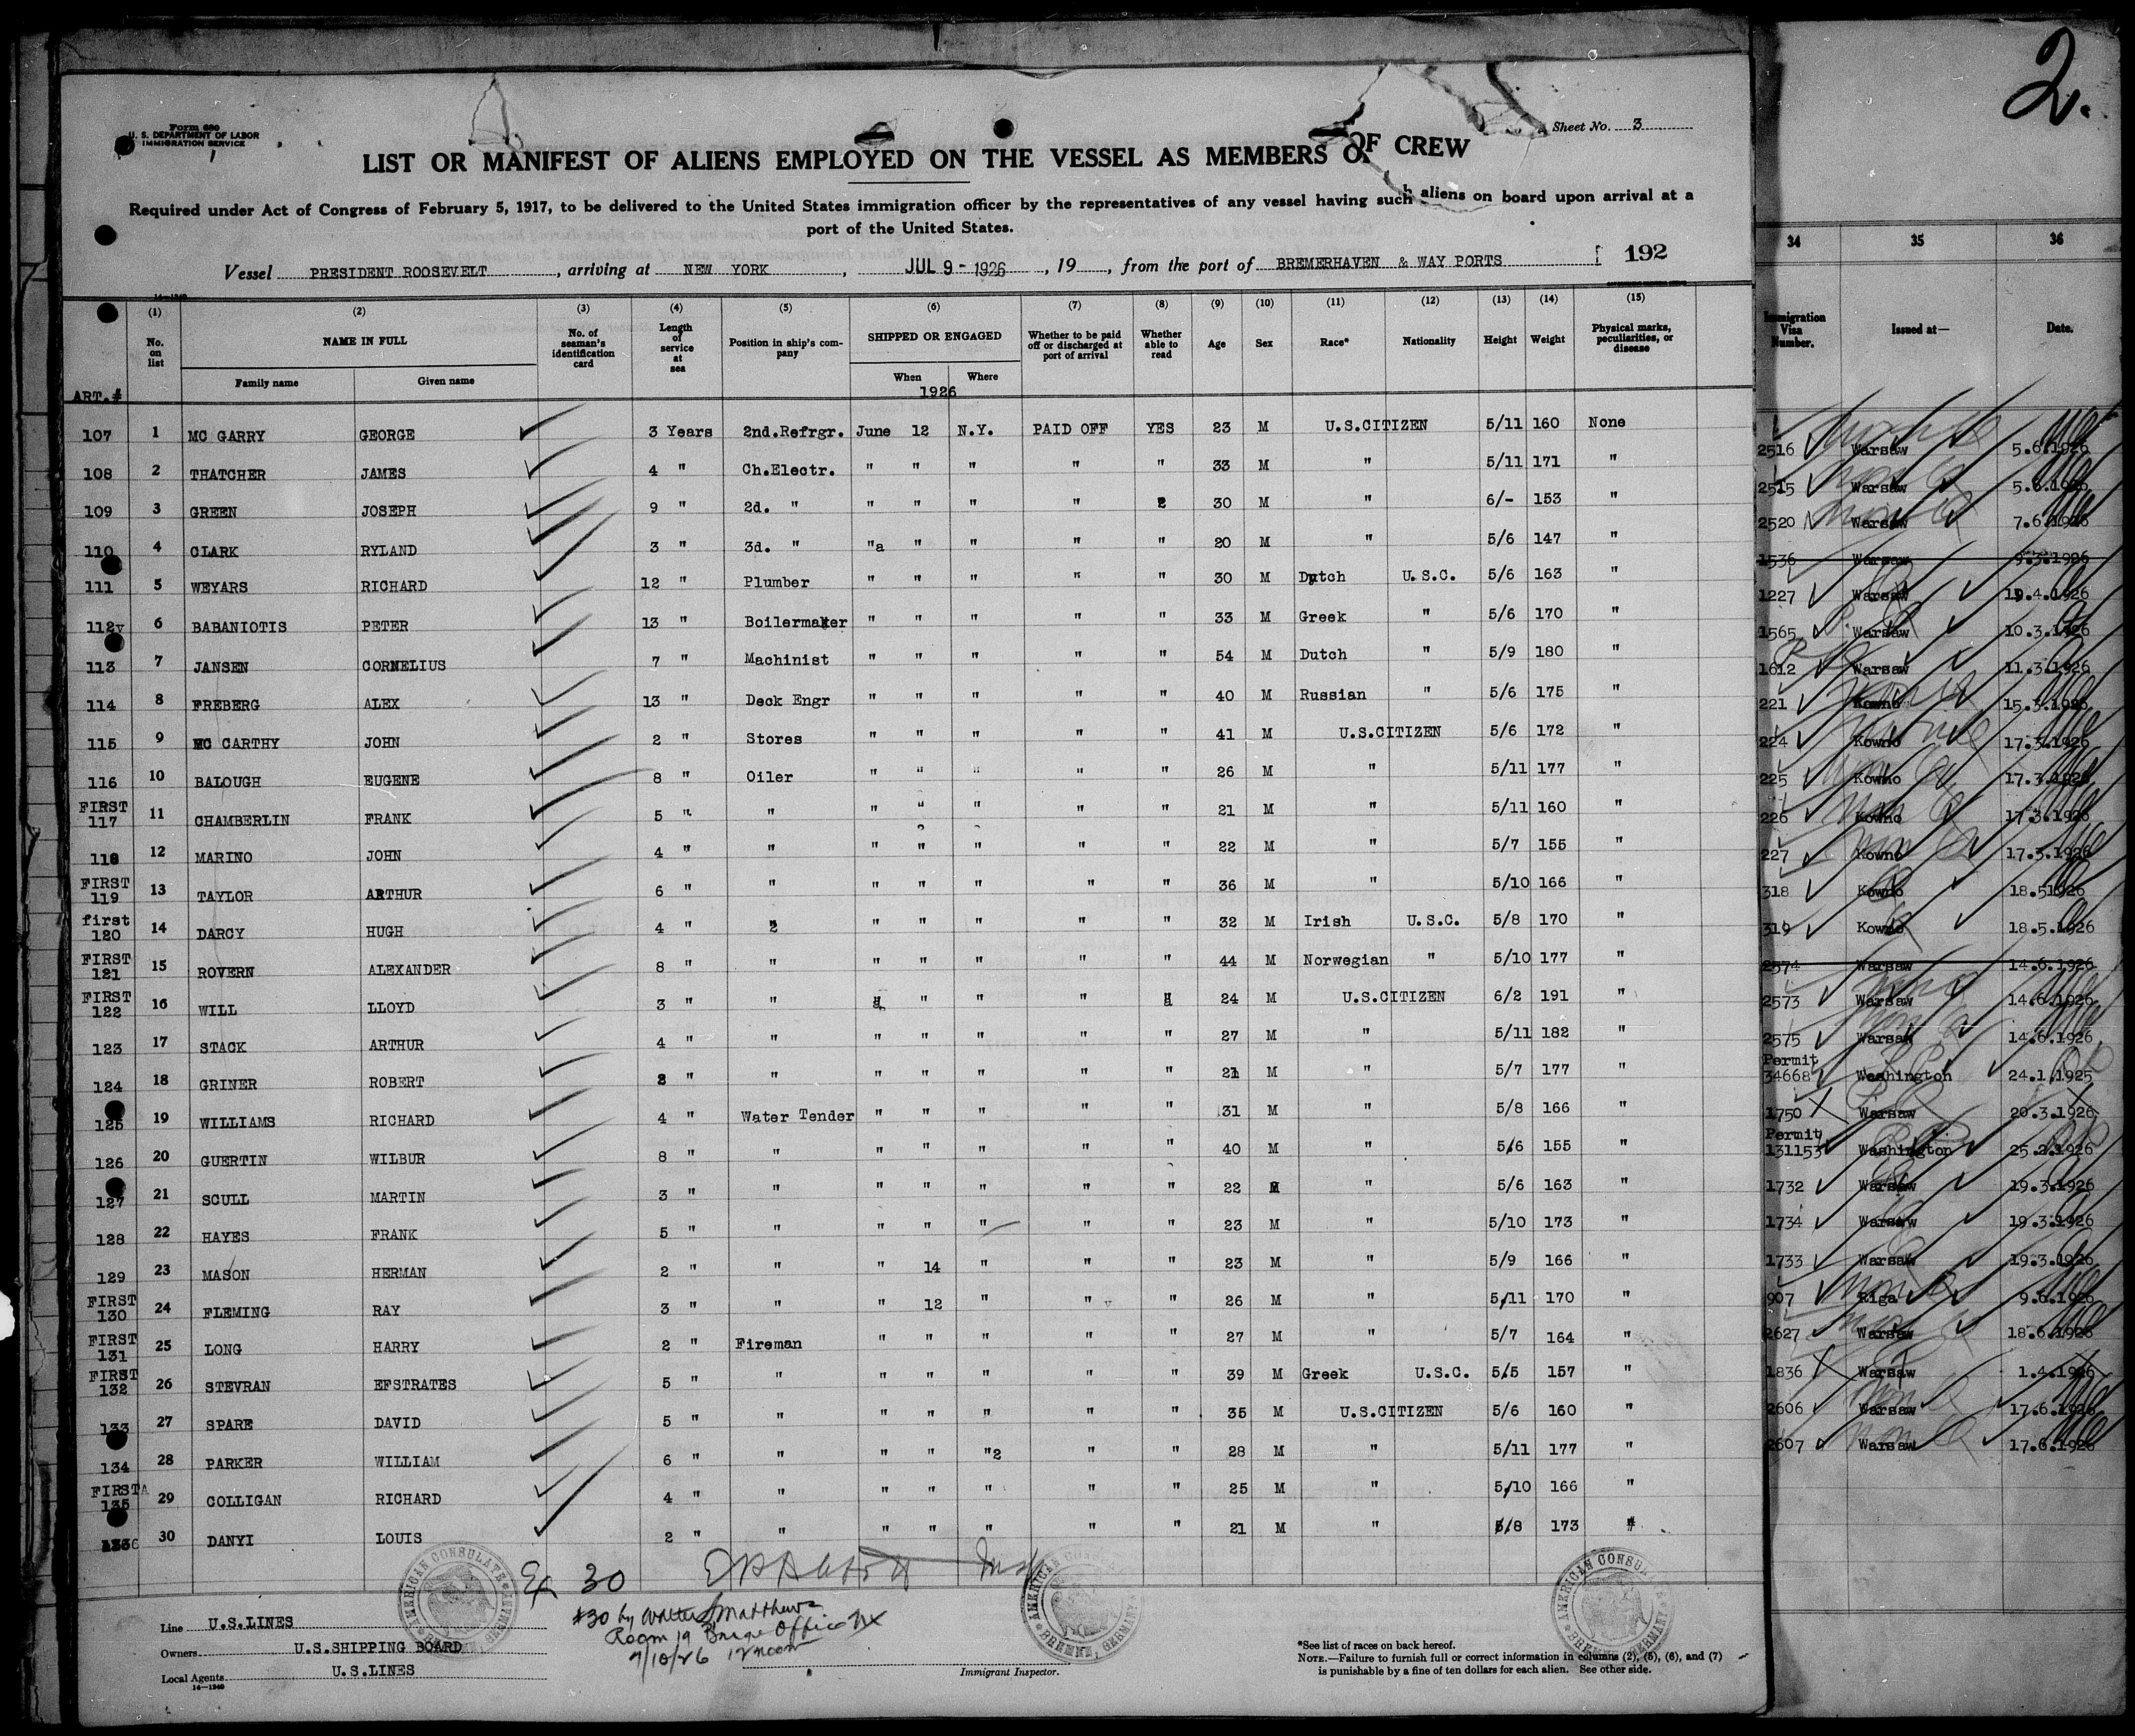 2.
Form 680
U. S. DEPARTMENT OF LABOR
IMMIGRATION SERVICE
Sheet No. 3
LIST OR MANIFEST OF ALIENS EMPLOYED ON THE VESSEL AS MEMBERS OF CREW
Required under Act of Congress of February 5, 1917, to be delivered to the United States immigration officer by the representatives of any vessel having such aliens on board upon arrival at a
port of the United States.
Vessel PRESIDENT ROOSEVELT, arriving at NEW YORK, JUL 9 - 1926, 19, from the port of BREMERHAVEN & WAY PORTS 192
14-1240
(1) (2) (3) (4) (5) (6) (7) (8) (9) (10) (11) (12) (13) (14) (15)
No. on list NAME IN FULL No. of seaman's identification card Length of service at sea Position in ship's company SHIPPED OR ENGAGED Whether to be paid off or discharged at port of arrival Whether able to read Age Sex Race* Nationality Height Weight Physical marks, peculiarities, or disease
Family name Given name When Where
ART.# 1926
107 1 MC GARRY GEORGE 3 Years 2nd.Refrgr. June 12 N.Y. PAID OFF YES 23 M U.S.CITIZEN 5/11 160 None
108 2 THATCHER JAMES 4 " Ch.Electr. " " " " " 33 M " 5/11 171 "
109 3 GREEN JOSEPH 9 " 2d. " " " " " 2 30 M " 6/- 153 "
110 4 CLARK RYLAND 3 " 3d. " "a " " " " 20 M " 5/6 147 "
111 5 WEYARS RICHARD 12 " Plumber " " " " " 30 M Dutch U.S.C. 5/6 163 "
112v 6 BABANIOTIS PETER 13 " Boilermaker " " " " " 33 M Greek " 5/6 170 "
113 7 JANSEN CORNELIUS 7 " Machinist " " " " " 54 M Dutch " 5/9 180 "
114 8 FREBERG ALEX 13 " Deck Engr " " " " " 40 M Russian " 5/6 175 "
115 9 MC CARTHY JOHN 2 " Stores " " " " " 41 M U.S.CITIZEN 5/6 172 "
116 10 BALOUGH EUGENE 8 " Oiler " " " " " 26 M " 5/11 177 "
FIRST
117 11 CHAMBERLIN FRANK 5 " " " " " " " 21 M " 5/11 160 "
118 12 MARINO JOHN 4 " " " " " " " 22 M " 5/7 155 "
FIRST
119 13 TAYLOR ARTHUR 6 " " " " " " " 36 M " 5/10 166 "
first
120 14 DARCY HUGH 4 " 2 " " " " " 32 M Irish U.S.C. 5/8 170 "
FIRST
121 15 ROVERN ALEXANDER 8 " " " " " " " 44 M Norwegian " 5/10 177 "
FIRST
122 16 WILL LLOYD 3 " " " " " " 24 M U.S.CITIZEN 6/2 191 "
123 17 STACK ARTHUR 4 " " " " " " " 27 M " 5/11 182 "
124 18 GRINER ROBERT 2 " " " " " " " 21 M " 5/7 177 "
125 19 WILLIAMS RICHARD 4 " Water Tender " " " " " 31 M " 5/8 166 "
126 20 GUERTIN WILBUR 8 " " " " " " " 40 M " 5/6 155 "
127 21 SCULL MARTIN 3 " " " " " " " 22 M " 5/6 163 "
128 22 HAYES FRANK 5 " " " " " " " 23 M " 5/10 173 "
129 23 MASON HERMAN 2 " " " 14 " " " 23 M " 5/9 166 "
FIRST
130 24 FLEMING RAY 3 " " " 12 " " " 26 M " 5/11 170 "
FIRST
131 25 LONG HARRY 2 " Fireman " " " " " 27 M " 5/7 164 "
FIRST
132 26 STEVRAN EFSTRATES 5 " " " " " " " 39 M Greek U.S.C. 5/5 157 "
133 27 SPARE DAVID 5 " " " " " " " 35 M U.S.CITIZEN 5/6 160 "
134 28 PARKER WILLIAM 6 " " " " "2 " " 28 M " 5/11 177 "
FIRSTA
135 29 COLLIGAN RICHARD 4 " " " " " " " 25 M " 5/10 166 "
136 30 DANYI LOUIS 2 " " " " " " " 21 M " 5/8 173 "
Ex 30
#30 by Walter Matthews
Room 19 Barge Office NY
7/10/26 12 noon
AMERICAN CONSULATE BREMEN, GERMANY
AMERICAN CONSULATE BREMEN, GERMANY
AMERICAN CONSULATE BREMEN, GERMANY
Line U.S.LINES
Owners U.S.SHIPPING BOARD
Local Agents U.S.LINES
14-1240
Immigrant Inspector.
*See list of races on back hereof.
NOTE.—Failure to furnish full or correct information in columns (2), (5), (6), and (7)
is punishable by a fine of ten dollars for each alien. See other side.
34 35 36
Immigration Visa Number. Issued at— Date.
2516 Warsaw 5.6.1926
2515 Warsaw 5.6.1926
2520 Warsaw 7.6.1926
1536 Warsaw 9.3.1926
1227 Warsaw 19.4.1926
1565 Warsaw 10.3.1926
1612 Warsaw 11.3.1926
221 Kowno 15.3.1926
224 Kowno 17.3.1926
225 Kowno 17.3.1926
226 Kowno 17.3.1926
227 Kowno 17.3.1926
318 Kowno 18.5.1926
319 Kowno 18.5.1926
2574 Warsaw 14.6.1926
2573 Warsaw 14.6.1926
2575 Warsaw 14.6.1926
Permit
34668 Washington 24.1.1925
1750 Warsaw 20.3.1926
Permit
131153 Washington 25.2.1926
1732 Warsaw 19.3.1926
1734 Warsaw 19.3.1926
1733 Warsaw 19.3.1926
907 Riga 9.6.1926
2627 Warsaw 18.6.1926
1836 Warsaw 1.4.1926
2606 Warsaw 17.6.1926
2607 Warsaw 17.6.1926